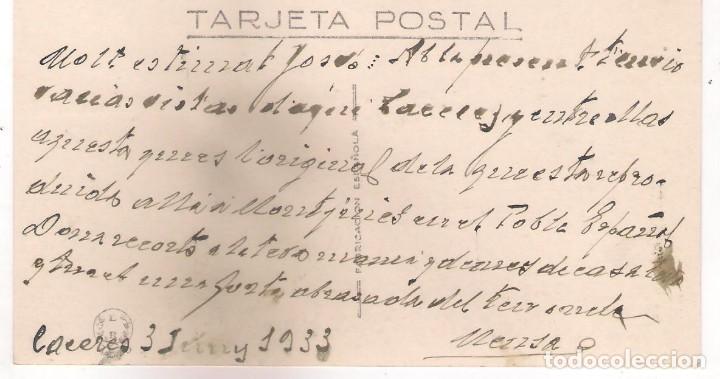 TARJETA POSTAL
Molt estimat José: Ab la present t'envio
varias vistas d'aqui Caceres y entre ellas
aquesta que es l'original de la que esta repro-
duida alla a Montjuich en el Poble Español
Dona recorts a la teva mama y demes de casa
y tu reb una forta abrasada del teu
Caceres 3 Juny 1933
FABRICACION ESPAÑOLA
todocoleccion